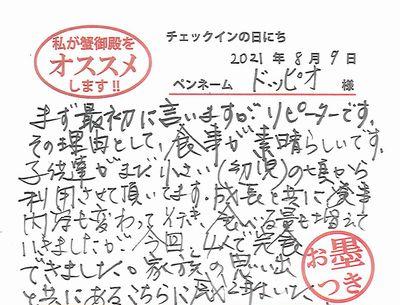 私が蟹御殿を
オススメ
します!!
チェックインの日にち
2021年8月9日
ペンネーム ドッピオ 様
まず最初に言いますが リピーターです。
その理由として、食事が素晴らしいです。
子供達がまだ小さい(幼児)の頃から
利用させて頂いてます。成長と共に食事
内容も変わって行き、食べる量も増えて
いきましたが、今回 4人で完食
できました。家族の思い出
と共にあるこちらに
お墨
つき